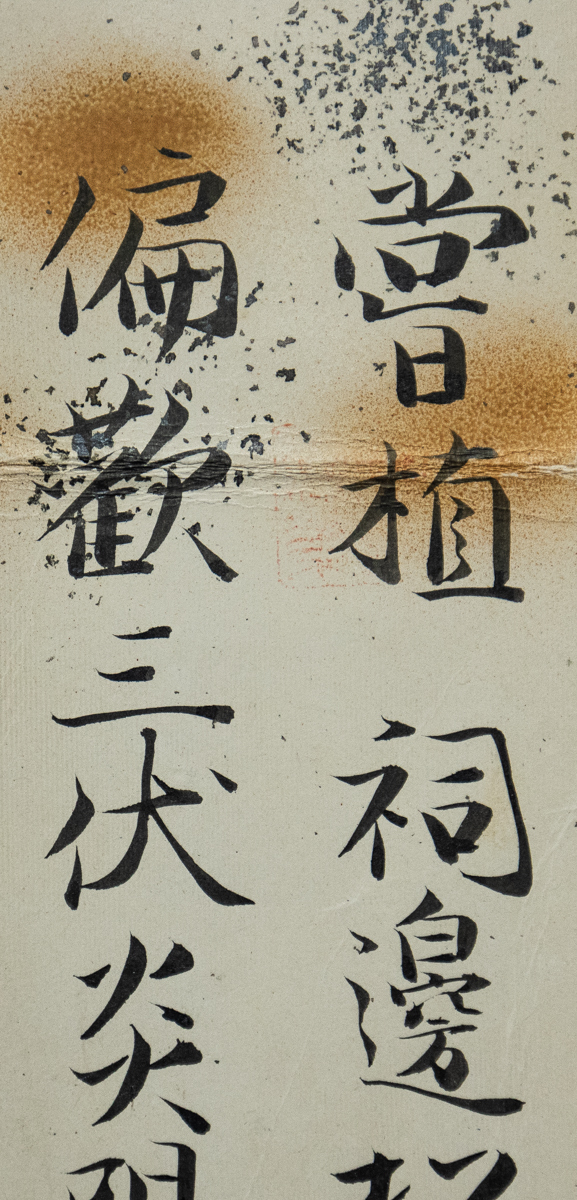 嘗植 祠邊
偏歡三伏炎